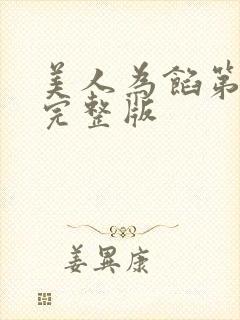 美人为馅第
完整版
姜異康